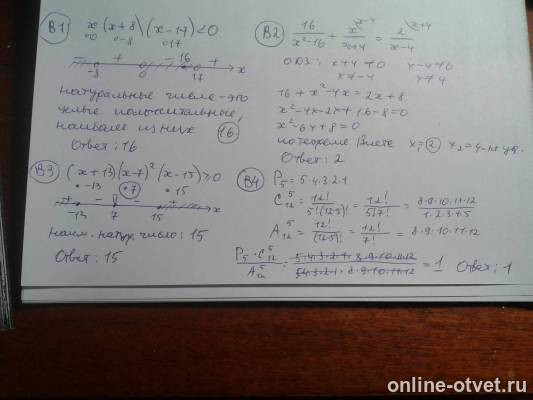 B1 x(x+8)(x-17)<0
°0 °-8 °17
- + - 16 +
-8 0 17 x
натуральные числа - это
целые положительные,
наиболее из них 16
Ответ: 16
B2 16/(x²-16) + x^{\x-4}/(x+4) = 2^{\x+4}/(x-4)
ОДЗ: x+4≠0 x-4≠0
x≠-4 x≠4
16+x²-4x=2x+8
x²-4x-2x+16-8=0
x²-6x+8=0
по теореме Виета x₁=2 x₂=4-не уд.
Ответ: 2
B3 (x+13)(x-7)²(x-15)≥0
•-13 •7 •15
+ - - +
-13 7 15 x
наим. натур. число: 15
Ответ: 15
B4 P₅=5·4·3·2·1
C₁₂⁵ = 12!/(5!(12-5)!) = 12!/(5!7!) = 8·9·10·11·12/(1·2·3·4·5)
A₁₂⁵ = 12!/(12-5)! = 12!/7! = 8·9·10·11·12
P₅·C₁₂⁵/A₁₂⁵ = 5·4·3·2·1·8·9·10·11·12/(5·4·3·2·1·8·9·10·11·12) = 1 Ответ: 1
online-otvet.ru